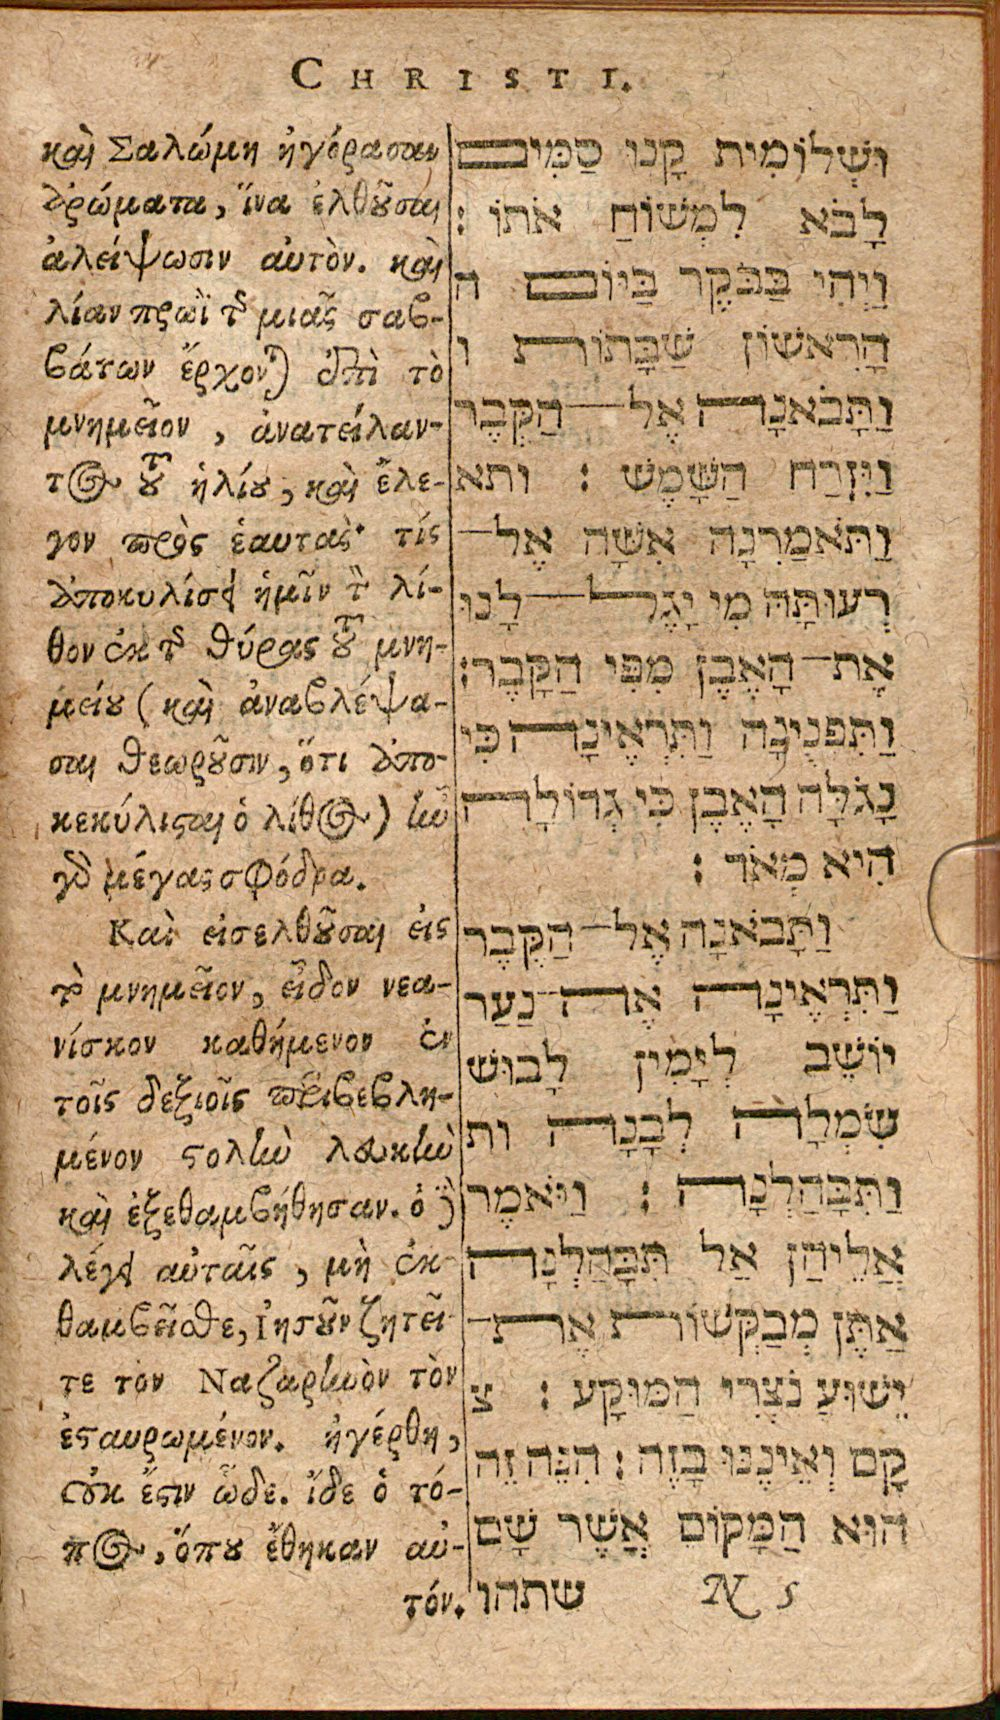 CHRISTI.
καὶ Σαλώμη ἠγόρασαν
ἀρώματα, ἵνα ἐλθοῦσαι
ἀλείψωσιν αὐτὸν. καὶ
λίαν πρωῒ τῆς μιᾶς σαβ-
βάτων ἔρχονται ἐπὶ τὸ
μνημεῖον, ἀνατείλαν-
τος τοῦ ἡλίου, καὶ ἔλε-
γον πρὸς ἑαυτὰς· τίς
ἀποκυλίσει ἡμῖν τὸν λί-
θον ἐκ τῆς θύρας τοῦ μνη-
μείου (καὶ ἀναβλέψα-
σαι θεωροῦσιν, ὅτι ἀπο-
κεκύλισται ὁ λίθος) ἦν
γὰρ μέγας σφόδρα.
Καὶ εἰσελθοῦσαι εἰς
τὸ μνημεῖον, εἶδον νεα-
νίσκον καθήμενον ἐν
τοῖς δεξιοῖς περιβεβλη-
μένον στολὴν λευκὴν
καὶ ἐξεθαμβήθησαν. ὁ δὲ
λέγει αὐταῖς, μὴ ἐκ-
θαμβεῖσθε, Ἰησοῦν ζητεῖ-
τε τον Ναζαρηνὸν τὸν
ἐσταυρωμένον. ἠγέρθη,
οὐκ ἔστιν ὧδε. ἴδε ὁ τό-
πος, ὅπου ἔθηκαν αὐ-
τόν.
וּשְׁלוֹמִית קָנוּ סַמִּים
לָבֹא לִמְשׁוֹחַ אֹתוֹ :
וַיְהִי בַּבֹּקֶר בַּיּוֹם ה
הָרִאשׁוֹן שַׁבָּתוֹת ו
וַתָּבֹאנָה אֶל־ הַקֶּבֶר
וַיִּזְרַח הַשָּׁמֶשׁ : ותא
וַתֹּאמַרְנָה אִשָּׁה אֶל־
רְעוּתָהּ מִי יָגֶל־ לָנוּ
אֶת־ הָאֶבֶן מִפִּי הַקָּבֶר:
וַתִּפְנֶינָה וַתִּרְאֶינָה כִּי
נָגֹלָּה הָאֶבֶן כִּי גְדוֹלָה
הִיא מְאֹד :
וַתָּבֹאנָה אֶל־ הַקֶּבֶר
וַתִּרְאֶינָה אֶת־ נַעַר
יוֹשֵׁב לְיָמִין לָבוּשׁ
שִׂמְלָה לְבָנָה ות
וַתִּבָּהַלְנָה : וַיֹּאמֶר
אֲלֵיהַן אַל תִּבָּהַלְנָה
אַתֶּן מְבַקְשׁוֹת אֶת־
יֵשׁוּעַ נֹצְרִי הַמּוּקָע : צ
קָם וְאֵינֶנּוּ בָזֶה : הִנֵּה זֶה
הוּא הַמָּקוֹם אֲשֶׁר שָׁם
שתהו
N 5